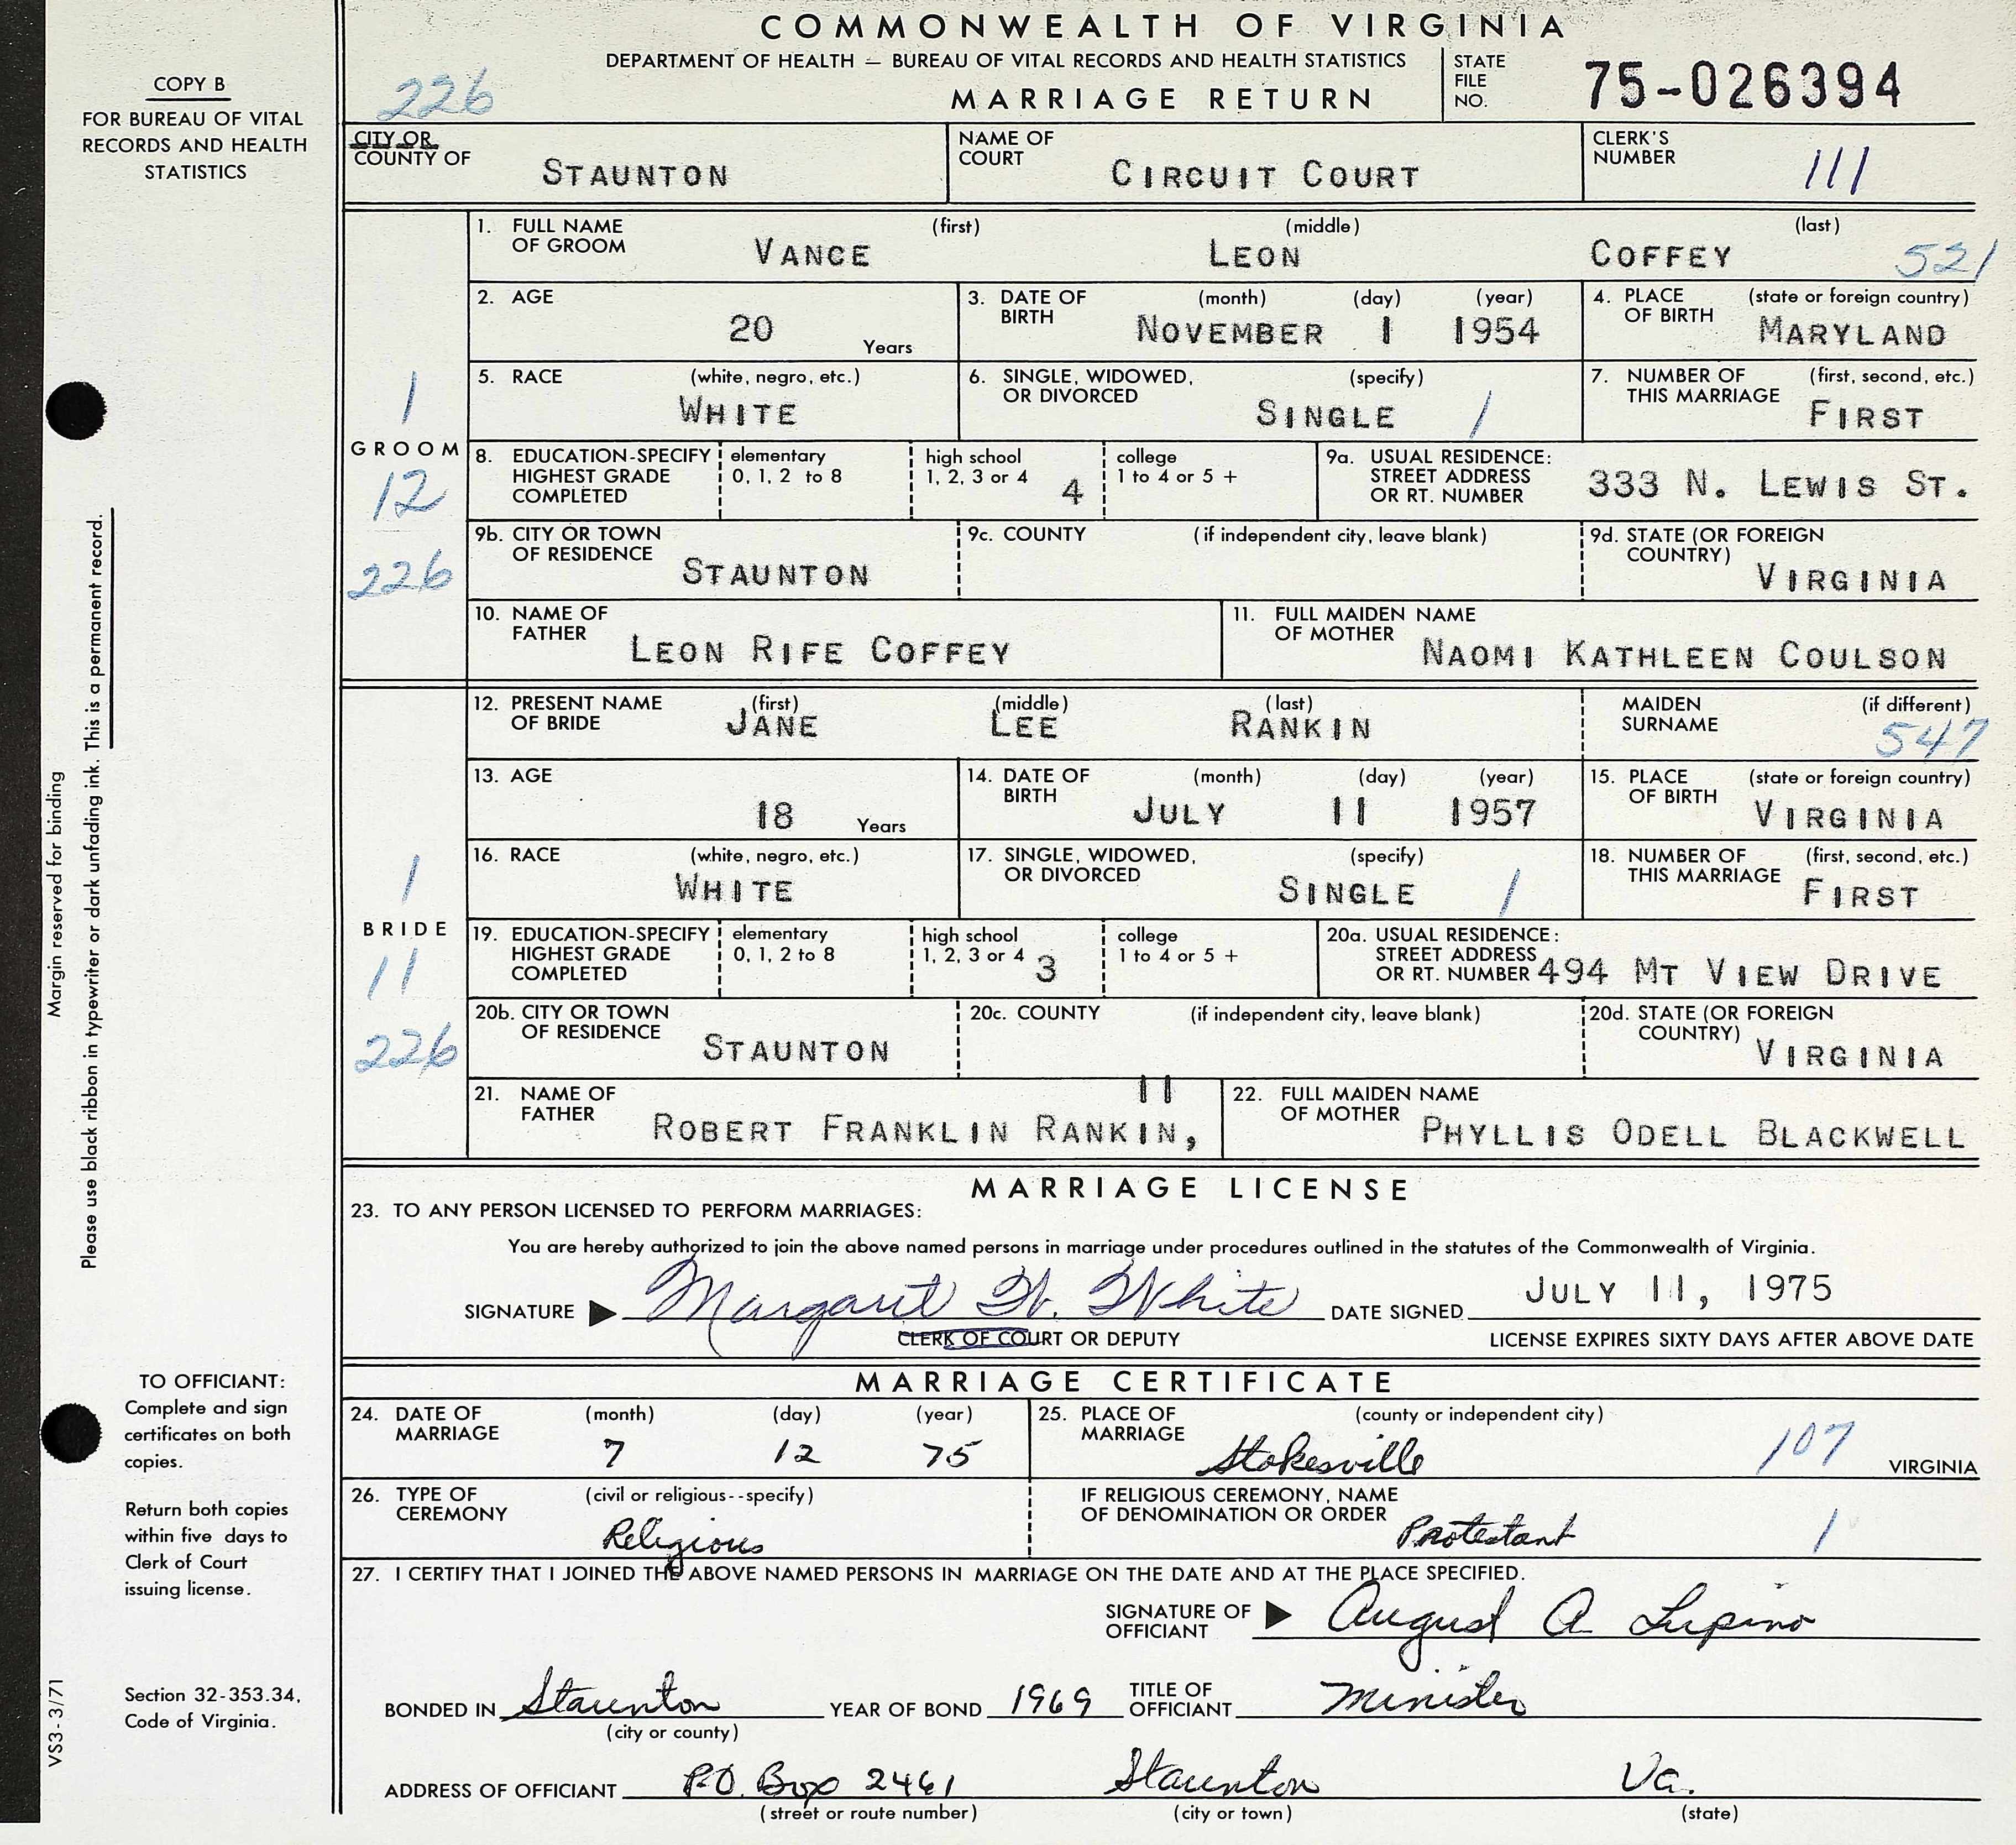 COMMONWEALTH OF VIRGINIA
DEPARTMENT OF HEALTH — BUREAU OF VITAL RECORDS AND HEALTH STATISTICS
MARRIAGE RETURN
STATE FILE NO. 75-026394
COPY B
FOR BUREAU OF VITAL
RECORDS AND HEALTH
STATISTICS
226
CITY OR COUNTY OF STAUNTON
NAME OF COURT CIRCUIT COURT
CLERK'S NUMBER 111
1. FULL NAME OF GROOM (first) VANCE (middle) LEON (last) COFFEY 521
2. AGE 20 Years
3. DATE OF BIRTH (month) NOVEMBER (day) 1 (year) 1954
4. PLACE OF BIRTH (state or foreign country) MARYLAND
5. RACE (white, negro, etc.) WHITE
6. SINGLE, WIDOWED, OR DIVORCED (specify) SINGLE 1
7. NUMBER OF THIS MARRIAGE (first, second, etc.) FIRST
1
GROOM
12
226
8. EDUCATION-SPECIFY HIGHEST GRADE COMPLETED elementary 0, 1, 2 to 8 high school 1, 2, 3 or 4 4 college 1 to 4 or 5 +
9a. USUAL RESIDENCE: STREET ADDRESS OR RT. NUMBER 333 N. LEWIS ST.
9b. CITY OR TOWN OF RESIDENCE STAUNTON
9c. COUNTY (if independent city, leave blank)
9d. STATE (OR FOREIGN COUNTRY) VIRGINIA
10. NAME OF FATHER LEON RIFE COFFEY
11. FULL MAIDEN NAME OF MOTHER NAOMI KATHLEEN COULSON
12. PRESENT NAME OF BRIDE (first) JANE (middle) LEE (last) RANKIN
MAIDEN SURNAME (if different) 547
13. AGE 18 Years
14. DATE OF BIRTH (month) JULY (day) 11 (year) 1957
15. PLACE OF BIRTH (state or foreign country) VIRGINIA
16. RACE (white, negro, etc.) WHITE
17. SINGLE, WIDOWED, OR DIVORCED (specify) SINGLE 1
18. NUMBER OF THIS MARRIAGE (first, second, etc.) FIRST
1
BRIDE
11
226
19. EDUCATION-SPECIFY HIGHEST GRADE COMPLETED elementary 0, 1, 2 to 8 high school 1, 2, 3 or 4 3 college 1 to 4 or 5 +
20a. USUAL RESIDENCE: STREET ADDRESS OR RT. NUMBER 494 MT VIEW DRIVE
20b. CITY OR TOWN OF RESIDENCE STAUNTON
20c. COUNTY (if independent city, leave blank)
20d. STATE (OR FOREIGN COUNTRY) VIRGINIA
21. NAME OF FATHER ROBERT FRANKLIN RANKIN, II
22. FULL MAIDEN NAME OF MOTHER PHYLLIS ODELL BLACKWELL
MARRIAGE LICENSE
23. TO ANY PERSON LICENSED TO PERFORM MARRIAGES:
You are hereby authorized to join the above named persons in marriage under procedures outlined in the statutes of the Commonwealth of Virginia.
SIGNATURE Margaret W. White DATE SIGNED JULY 11, 1975
CLERK OF COURT OR DEPUTY LICENSE EXPIRES SIXTY DAYS AFTER ABOVE DATE
MARRIAGE CERTIFICATE
24. DATE OF MARRIAGE (month) 7 (day) 12 (year) 75
25. PLACE OF MARRIAGE (county or independent city) Stokesville 107 VIRGINIA
26. TYPE OF CEREMONY (civil or religious--specify) Religious
IF RELIGIOUS CEREMONY, NAME OF DENOMINATION OR ORDER Protestant 1
27. I CERTIFY THAT I JOINED THE ABOVE NAMED PERSONS IN MARRIAGE ON THE DATE AND AT THE PLACE SPECIFIED.
SIGNATURE OF OFFICIANT August A Lupino
BONDED IN Staunton YEAR OF BOND 1969 TITLE OF OFFICIANT Minister
(city or county)
ADDRESS OF OFFICIANT P.O. Box 2461 Staunton Va.
(street or route number) (city or town) (state)
Margin reserved for binding
Please use black ribbon in typewriter or dark unfading ink. This is a permanent record.
TO OFFICIANT:
Complete and sign
certificates on both
copies.
Return both copies
within five days to
Clerk of Court
issuing license.
Section 32-353.34,
Code of Virginia.
VS3-3/71